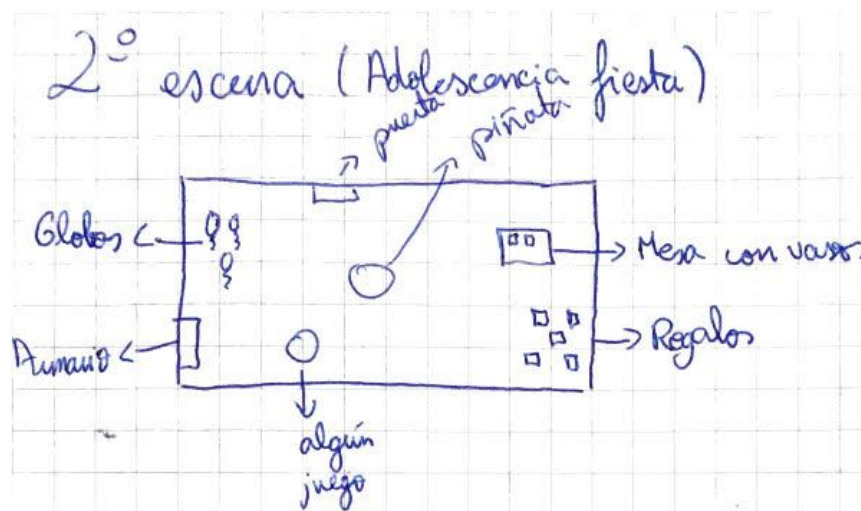 2º escena (Adolescencia fiesta)
puerta
piñata
Globos
Mesa con vasos
Armario
Regalos
algún
juego